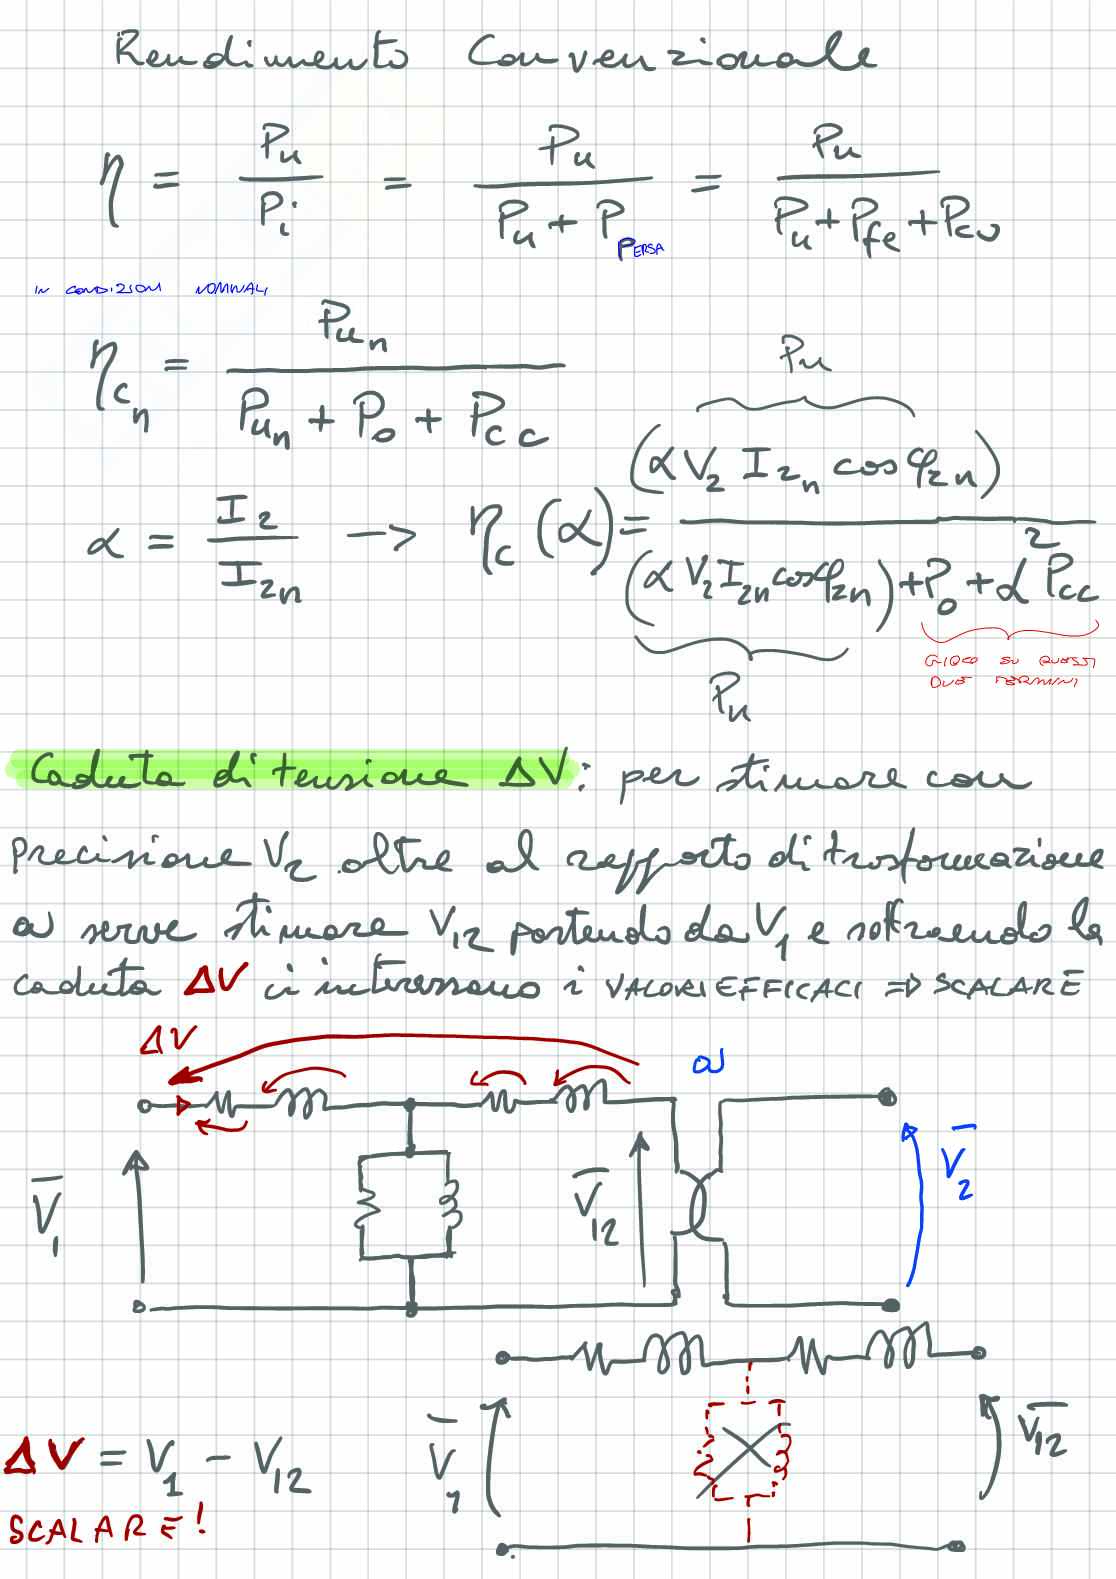 Rendimento Convenzionale
η = Pu / Pi = Pu / (Pu + P PERSA) = Pu / (Pu + Pfe + Pcu)
IN CONDIZIONI NOMINALI
ηcn = Pun / (Pun + P0 + Pcc)
Pu
α = I2 / I2n -> ηc (α) = (α V2 I2n cosφ2n) / ((α V2 I2n cosφ2n) + P0 + α² Pcc)
Pu
GIOCO SU QUESTI
DUE TERMINI
Caduta di tensione ΔV: per stimare con
precisione V2 oltre al rapporto di trasformazione
a serve stimare V12 partendo da V1 e sottraendo la
caduta ΔV ci interessano i VALORI EFFICACI => SCALARE
ΔV
a
V̅1
V̅12
V̅2
ΔV = V1 - V12
V̅1
V̅12
SCALARE!